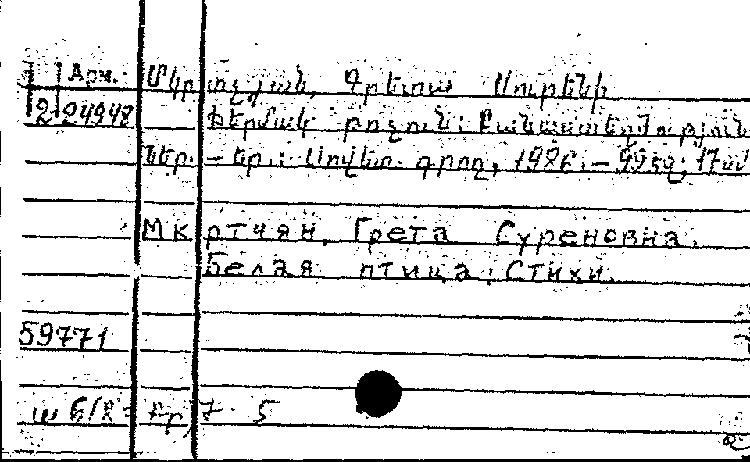 Арм. Մկրտչյան, Գրետա Սուրենի
2-24948 Ճերմակ թռչուն: Բանաստեղծություն
ներ. – Եր.: Սովետ. գրող, 1986. – 99 էջ; 17 սմ
Мкртчян, Грета Суреновна.
Белая птица: Стихи.
59771